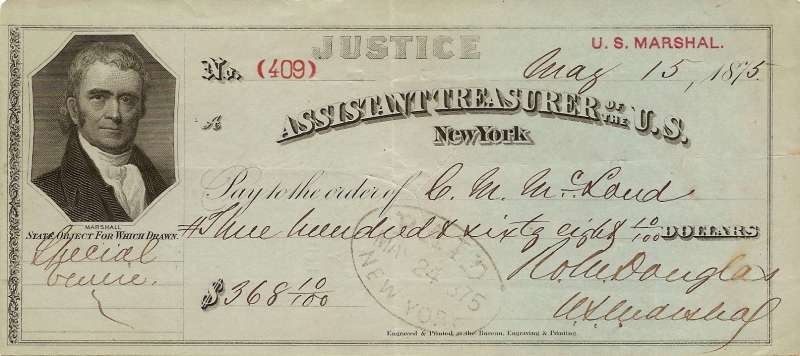 JUSTICE
U. S. MARSHAL.
No. (409)
May 15, 1875.
A
ASSISTANT TREASURER OF THE U.S.
New York
Pay to the order of C. M. McLoud
Three hundred & sixty eight 10/100 DOLLARS
MARSHALL
STATE OBJECT FOR WHICH DRAWN.
Special
$368 10/100
PAID
MAY 24 1875
NEW YORK
Douglas
US Marshal
Engraved & Printed at the Bureau, Engraving & Printing.